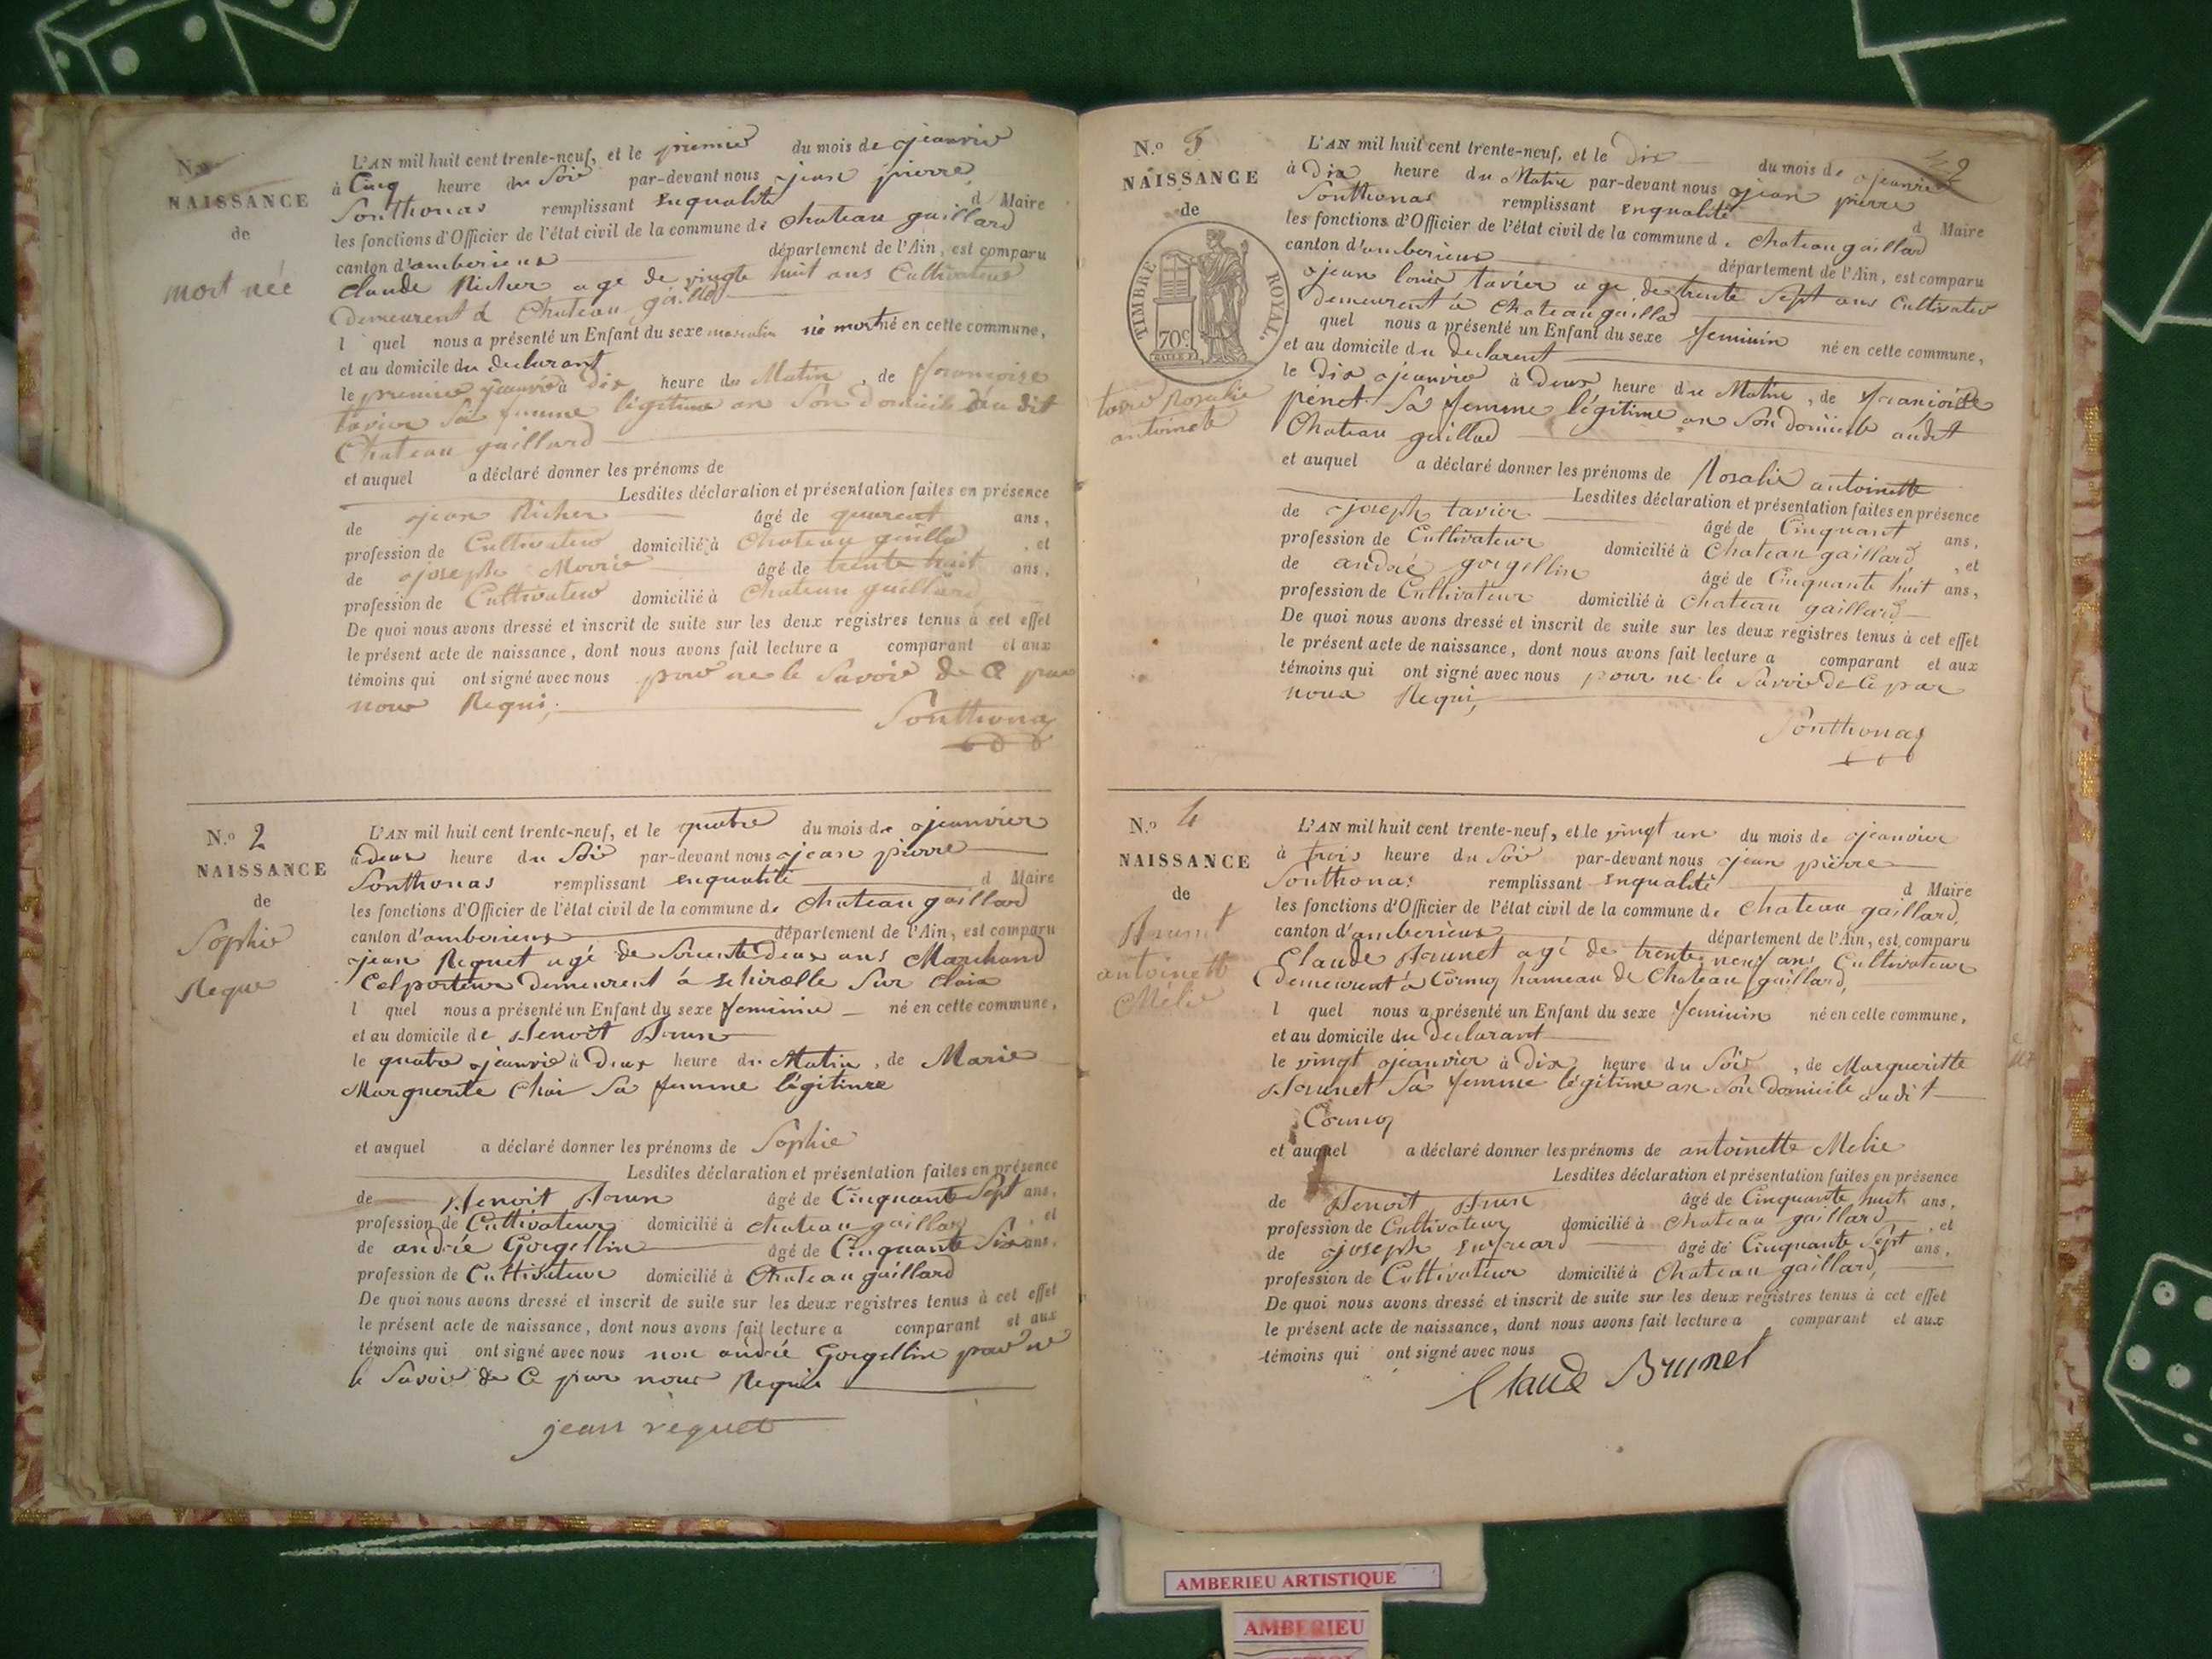 N.o
NAISSANCE
de
mort neé
L'AN mil huit cent trente-neuf, et le premie du mois de jeanvie
à Cinq heure du Soir par-devant nous jean pierre
Sonthonas remplissant enqualité d Maire
les fonctions d'Officier de l'état civil de la commune de chateau gaillard
canton d'amberieux département de l'Ain, est comparu
Claude Richer age de vingte huit ans Cultivateur
demeurent à Chateau gaillad
l quel nous a présenté un Enfant du sexe masculin né mort né en cette commune,
et au domicile du declarant
le premier jeanvié à dix heure du Matin, de francoise
tavier Sa femme légitime an Son domicile du dit
Chateau gaillard
et auquel a déclaré donner les prénoms de
Lesdites déclaration et présentation faites en présence
de jean Richer âgé de quarent ans,
profession de Cultivateur domicilié à Chateau gailla , et
de joseph âgé de trente huit ans,
profession de Cultivateur domicilié à Chateau gaillard
De quoi nous avons dressé et inscrit de suite sur les deux registres tenus à cet effet
le présent acte de naissance, dont nous avons fait lecture a comparant et aux
témoins qui ont signé avec nous pour ne le Savoir de Ce par
nous Requi,
Sonthonas
N.o 2
NAISSANCE
de
Sophie
Reque
L'AN mil huit cent trente-neuf, et le quatre du mois de jeanvier
à deux heure du Soi par-devant nous jean pierre
Sonthonas remplissant enqualité d Maire
les fonctions d'Officier de l'état civil de la commune de Chateau gaillard
canton d'amberieux département de l'Ain, est comparu
jean Requet agé de deux ans Marchand
Colporteur demeurent à Sur
l quel nous a présenté un Enfant du sexe feminin né en cette commune,
et au domicile de Benoit Brun
le quatre jeanvié à deux heure du Matin, de Marie
Marguerite Sa femme légitime
et auquel a déclaré donner les prénoms de Sophie
Lesdites déclaration et présentation faites en présence
de Benoit Brun âgé de Cinquante Sept ans,
profession de Cultivateur domicilié à chateau gaillard , et
de andrée Gorgellin âgé de Cinquante Six ans,
profession de Cultivateur domicilié à Chateau gaillard
De quoi nous avons dressé et inscrit de suite sur les deux registres tenus à cet effet
le présent acte de naissance, dont nous avons fait lecture a comparant et aux
témoins qui ont signé avec nous non andrée Gorgellin pour ne
le Savoir de Ce par nous Requis
jean requet
N.o 3
NAISSANCE
de
TIMBRE ROYAL.
70c.
tavie Rosalie
antoinete
L'AN mil huit cent trente-neuf, et le dix du mois de jeanvie
à Dix heure du Matin par-devant nous jean pierre
Sonthonas remplissant enqualité d Maire
les fonctions d'Officier de l'état civil de la commune de Chateau gaillard
canton d'amberieux département de l'Ain, est comparu
jean louis tavier age de trente Sept ans Cultivateur
demeurent à Chateau gaillad
quel nous a présenté un Enfant du sexe feminin né en cette commune,
et au domicile du declarent
le dix jeanvié à Deux heure du Matin, de francoise
penet Sa femme légitime an Son domicile audit
Chateau gaillad
et auquel a déclaré donner les prénoms de Rosalie antoinette
Lesdites déclaration et présentation faites en présence
de joseph tavier âgé de Cinquant ans,
profession de Cultivateur domicilié à Chateau gaillard , et
de andrée gorgellin âgé de Cinquante huit ans,
profession de Cultivateur domicilié à Chateau gaillard
De quoi nous avons dressé et inscrit de suite sur les deux registres tenus à cet effet
le présent acte de naissance, dont nous avons fait lecture a comparant et aux
témoins qui ont signé avec nous pour ne le Savoir de Ce par
nous Requi,
Sonthonas
N.o 4
NAISSANCE
de
Brunet
antoinett
Mélie
L'AN mil huit cent trente-neuf, et le vingt un du mois de jeanvier
à trois heure du Soir par-devant nous jean pierre
Sonthonas remplissant enqualité d Maire
les fonctions d'Officier de l'état civil de la commune de Chateau gaillard,
canton d'amberieux département de l'Ain, est comparu
Claude Brunet agé de trente neuf ans Cultivateur
demeurent à Cormoz hameau de Chateau gaillard,
l quel nous a présenté un Enfant du sexe feminin né en cette commune,
et au domicile du declarant
le vingt jeanvier à dix heure du Soir , de Margueritte
Brunet Sa femme légitime an Son domicile audit
Cormoz
et auquel a déclaré donner les prénoms de antoinette Melie
Lesdites déclaration et présentation faites en présence
de Benoit Brun âgé de Cinquante huit ans,
profession de Cultivateur domicilié à Chateau gaillard , et
de joseph âgé de Cinquante Sept ans,
profession de Cultivateur domicilié à Chateau gaillard,
De quoi nous avons dressé et inscrit de suite sur les deux registres tenus à cet effet
le présent acte de naissance, dont nous avons fait lecture a comparant et aux
témoins qui ont signé avec nous
Claude Brunet
AMBERIEU ARTISTIQUE
AMBERIEU